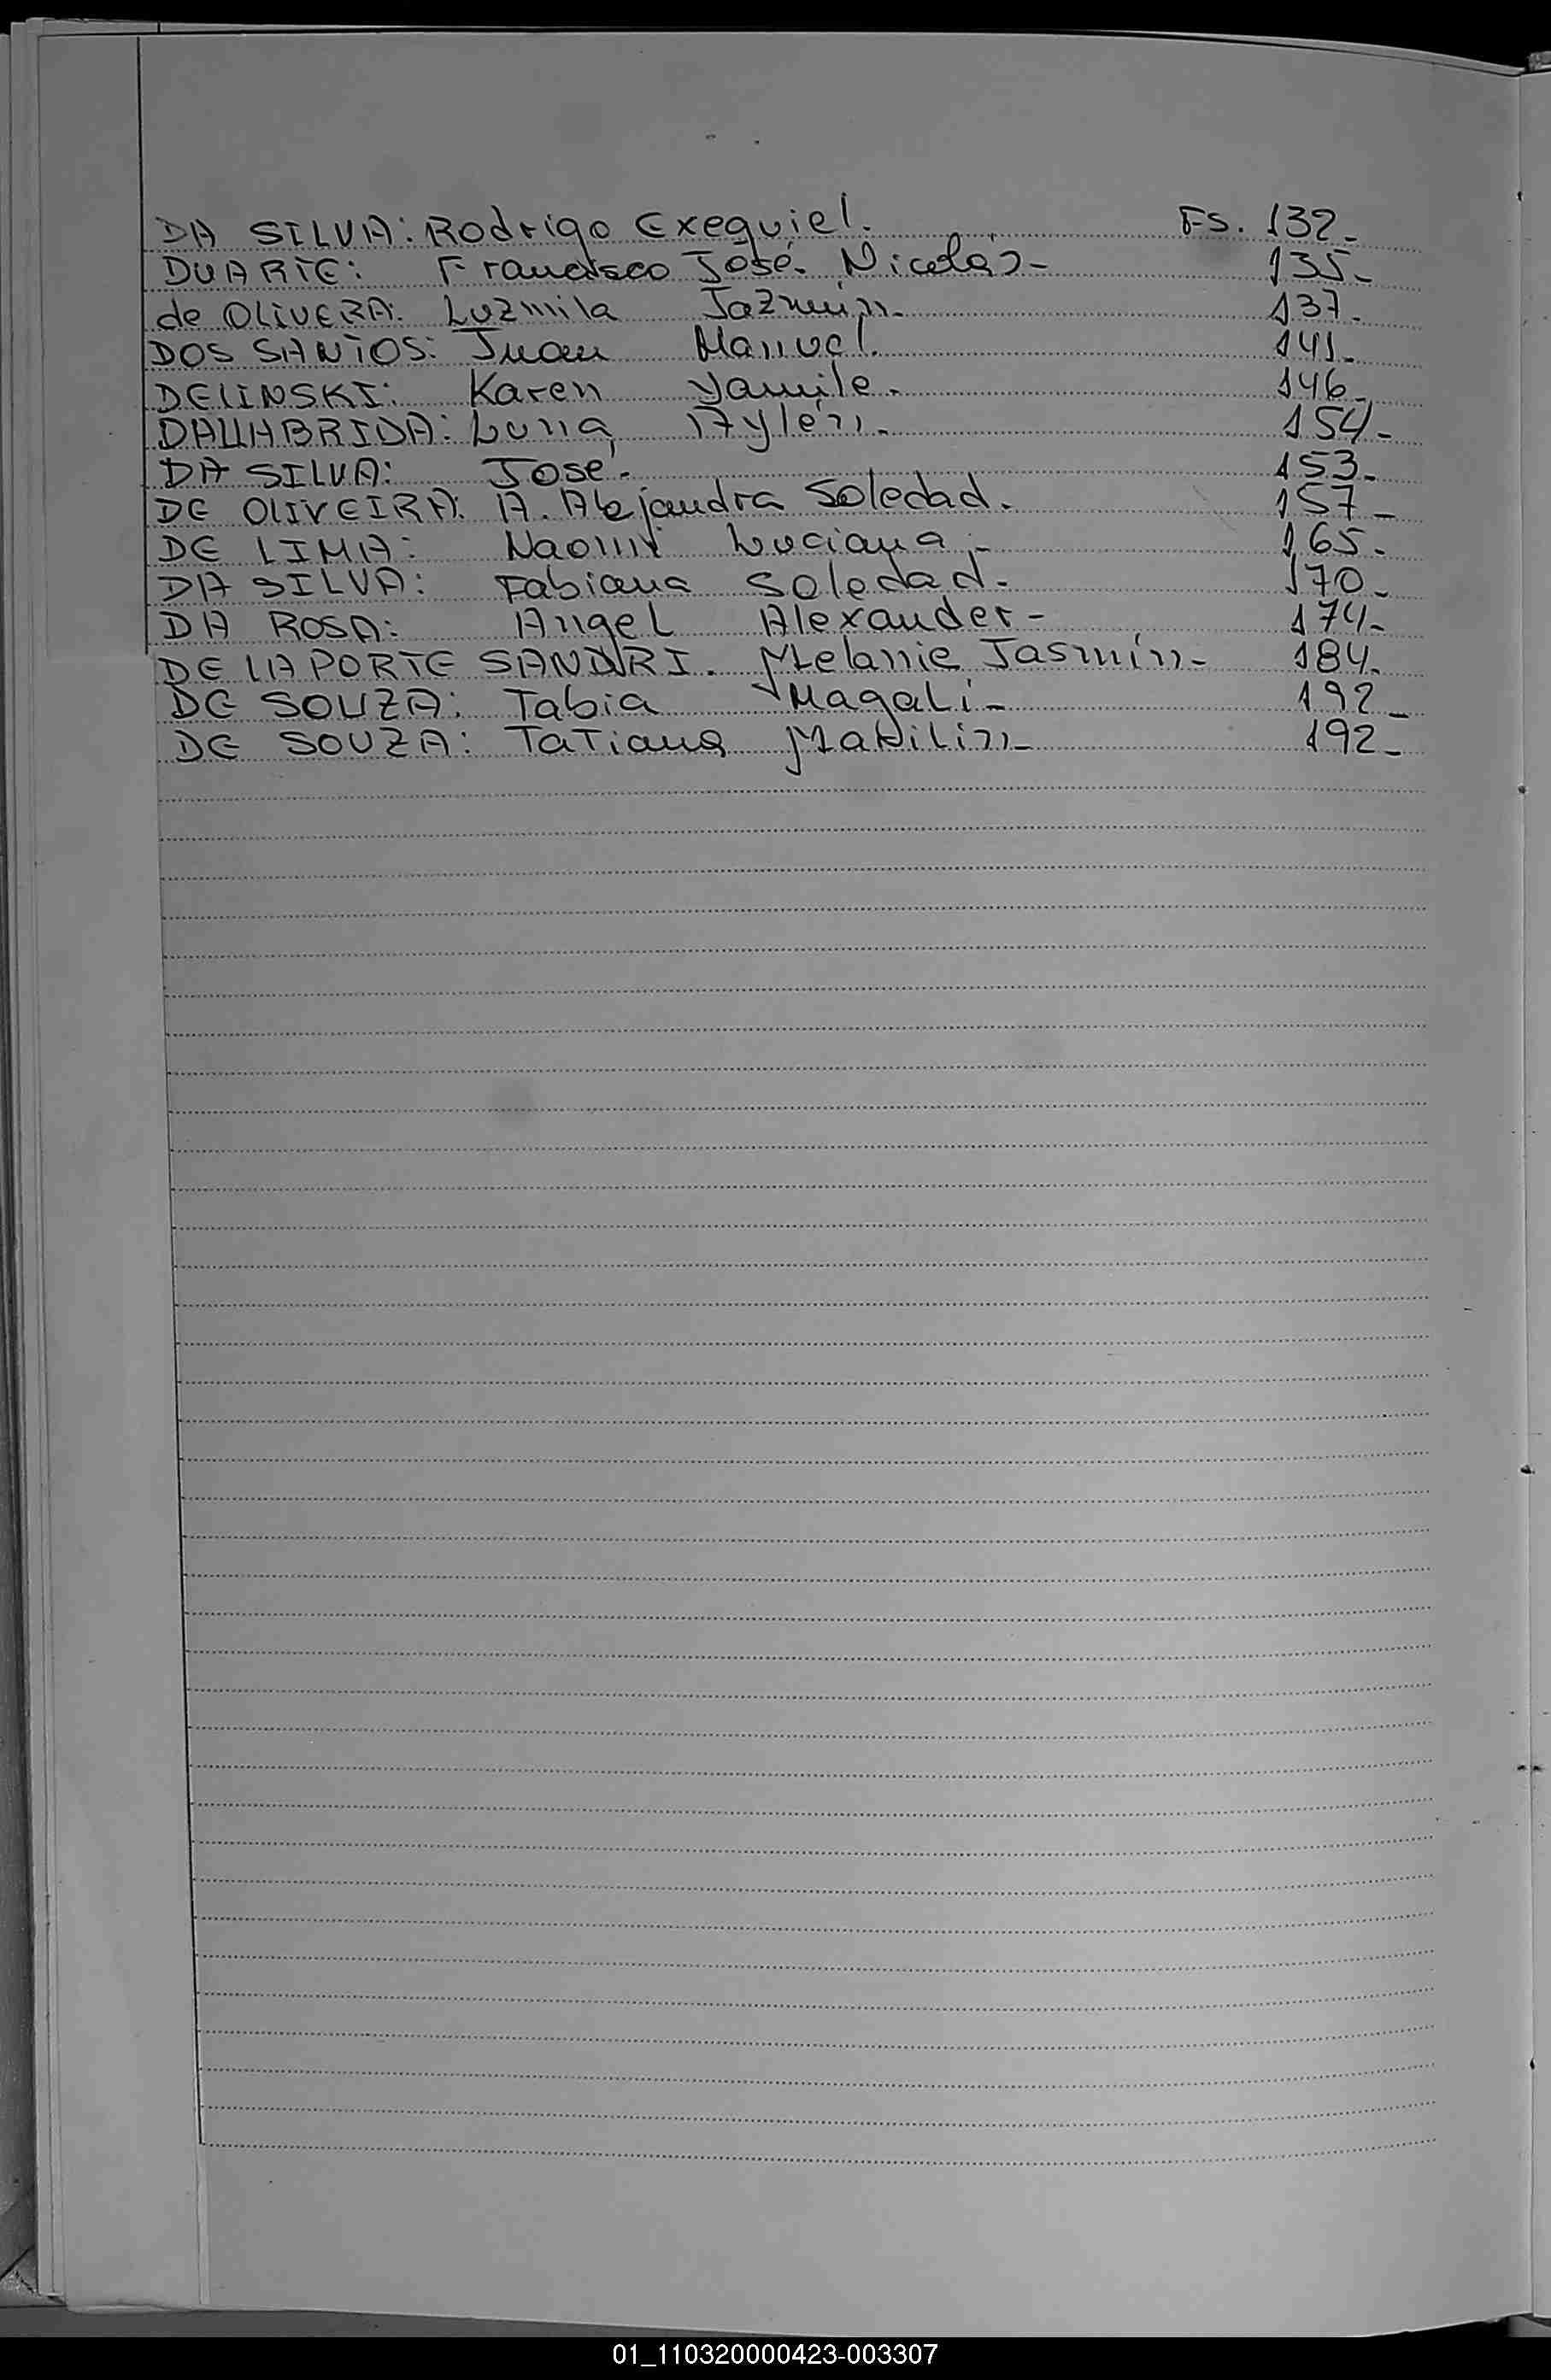 DA SILVA: Rodrigo Exequiel. Fs. 132-
DUARTE: Francisco José Nicolás- 135-
de OLIVERA: Luzmila Jazmín- 137-
DOS SANTOS: Juan Manuel. 141-
DELINSKI: Karen Yamile- 146-
DALLABRIDA: Luna Aylén- 154-
DA SILVA: José- 153-
DE OLIVEIRA: A. Alejandra Soledad. 157-
DE LIMA: Naomi Luciana- 165-
DA SILVA: Fabiana Soledad- 170-
DA ROSA: Angel Alexander- 174-
DE LA PORTE SANDRI. Melanie Jasmín- 184-
DE SOUZA: Tabia Magalí- 192-
DE SOUZA: Tatiana 192-
01_110320000423-003307